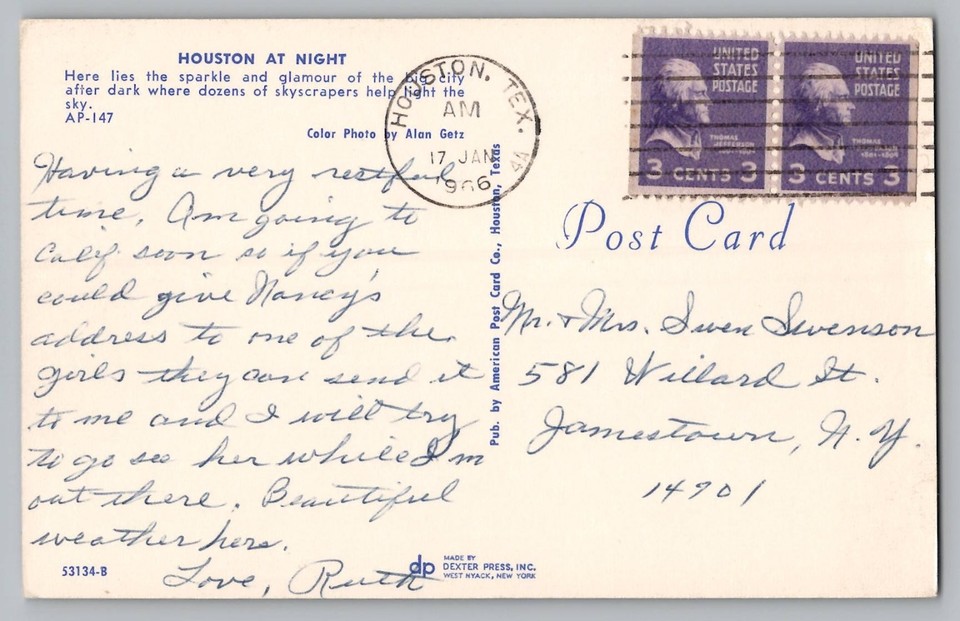 HOUSTON AT NIGHT
Here lies the sparkle and glamour of the big city
after dark where dozens of skyscrapers help light the
sky.
AP-147
Color Photo by Alan Getz
Having a very restful
time. Am going to
Calif. soon so if you
could give Nancy's
address to one of the
girls they can send it
to me and I will try
to go see her while I'm
out there. Beautiful
weather here.
Love, Ruth
53134-B
dp
MADE BY
DEXTER PRESS, INC.
WEST NYACK, NEW YORK
Pub. by American Post Card Co., Houston, Texas
HOUSTON, TEX.
AM
17 JAN
1966
4A
UNITED
STATES
POSTAGE
THOMAS
JEFFERSON
1801-1809
3 CENTS 3
UNITED
STATES
POSTAGE
THOMAS
JEFFERSON
1801-1809
3 CENTS 3
Post Card
Mr. + Mrs. Swen Swenson
581 Willard St.
Jamestown, N.Y.
14901